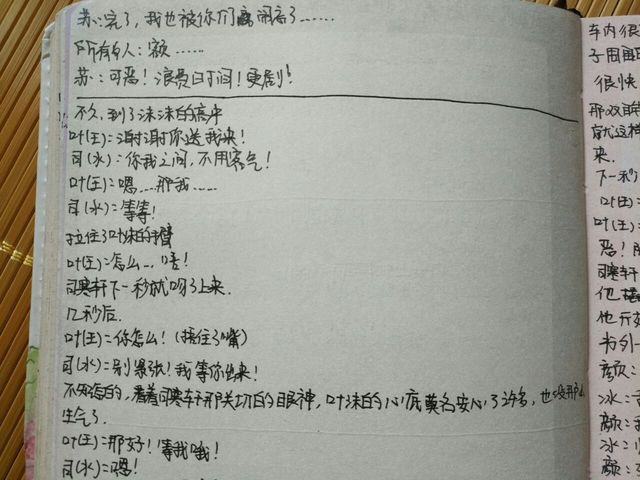 苏:完了,我也被你们离间高了……
所有人:额……
苏:可恶!浪费时间!更剧!
不久,到了沫沫的高中
叶(王):谢谢你送我来!
司(水):你我之间,不用客气!
叶(王):嗯……那我……
司(水):等等!
拉住了叶沫的手臂
叶(王):怎么…唔!
司寒轩下一秒就吻了上来.
几秒后.
叶(王):你怎么!(捂住了嘴)
司(水):别紧张!我等你出来!
不知怎的,看着司寒轩那关切的眼神,叶沫的心底莫名安心了许多,也没那么
生气了.
叶(王):那好!等我哦!
司(水):嗯!
车内很
子用再
很快
那双
就这样
来.
下一秒
叶(王):
叶(王):
恶!
司寒轩
他
他开
另外一
颜:
冰:
颜:
冰:
颜: